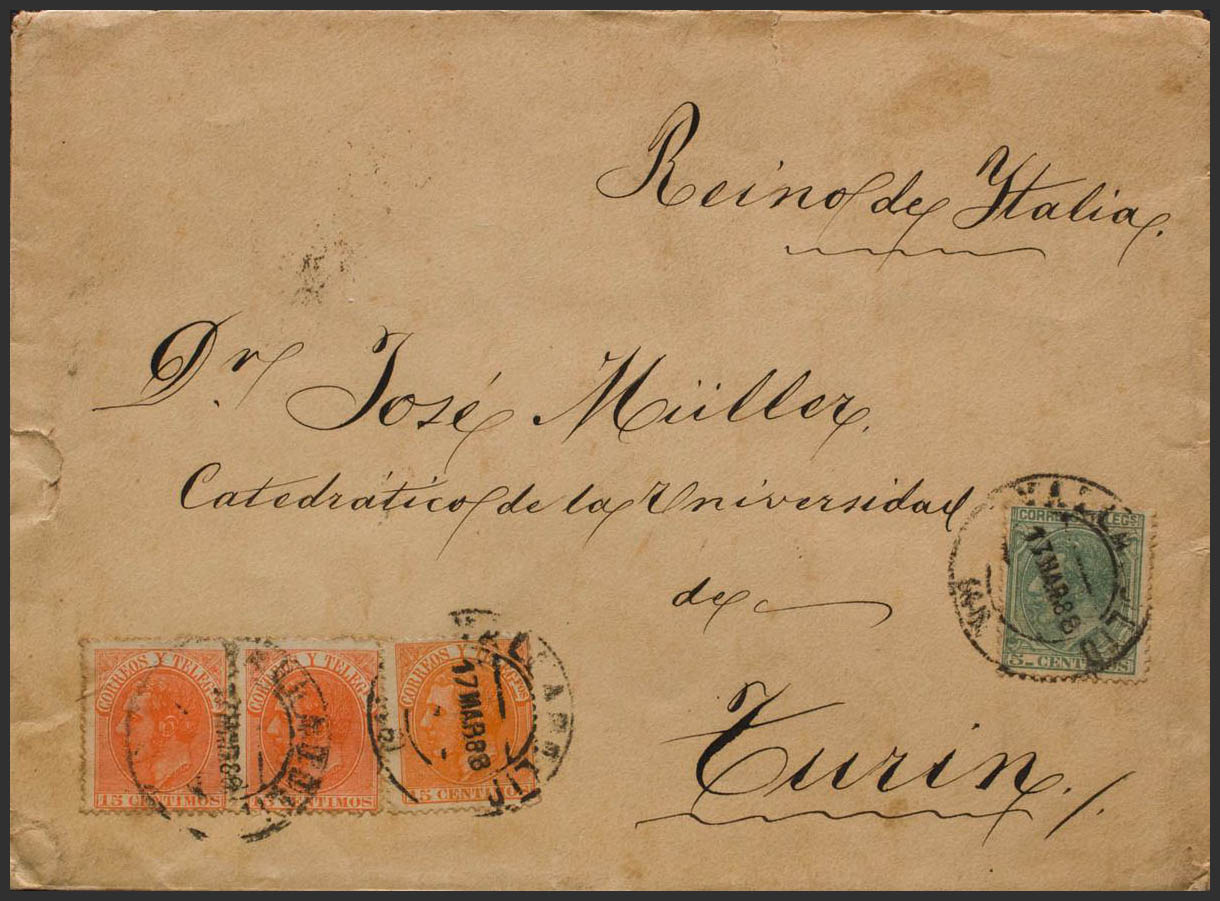 Reino de Italia.
Dr. José Müller.
Catedrático de la Universidad
de
Turin.
CORREOS Y TELEG
15 CENTIMOS
CORREOS Y TELEG
15 CENTIMOS
17 MAR 88
CORREOS Y TELEGˢ
15 CENTIMOS
17 MAR 88
CORREOS Y TELEGˢ
5 CENTIMOS
17 MAR 88